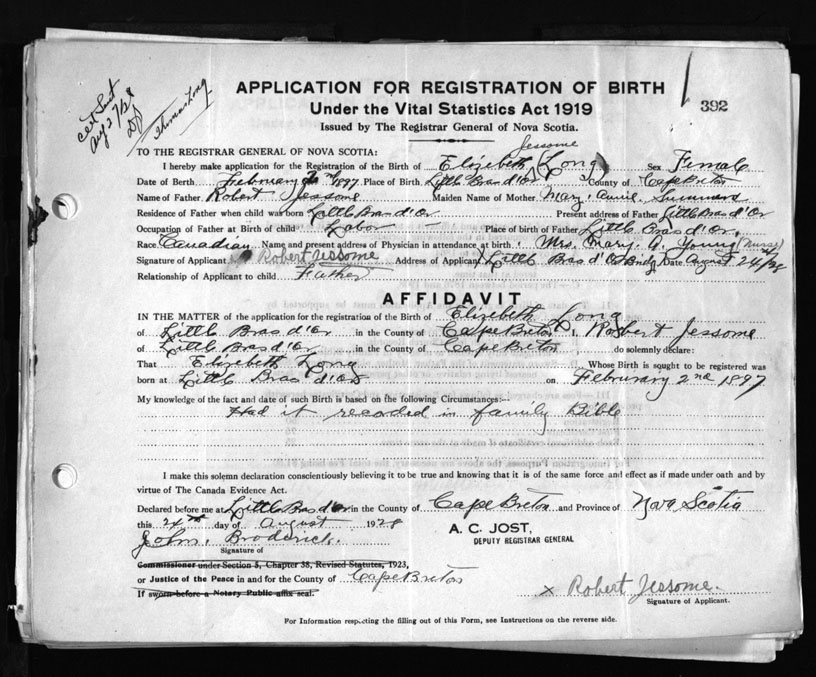 Cert Sent
Aug 27/28
Thomas Long
APPLICATION FOR REGISTRATION OF BIRTH
392
Under the Vital Statistics Act 1919
Issued by The Registrar General of Nova Scotia.
TO THE REGISTRAR GENERAL OF NOVA SCOTIA:
Jessome
I hereby make application for the Registration of the Birth of Elizebeth Long Sex Female
Date of Birth February 2nd 1897. Place of Birth Little Bras d'Or County of Cape Breton
Name of Father Robert Jessome Maiden Name of Mother Mary Summers
Residence of Father when child was born Little Bras d'Or Present address of Father Little Bras d'Or
Occupation of Father at Birth of child Labor Place of birth of Father Little Bras d'Or.
Race Canadian Name and present address of Physician in attendance at birth Mrs. Mary A. Young (Nurse)
Signature of Applicant Robert Jessome Address of Applicant Little Bras d'Or Bridge Date August 24/28
Relationship of Applicant to child Father
AFFIDAVIT
IN THE MATTER of the application for the registration of the Birth of Elizebeth Long
of Little Bras d'Or in the County of Cape Breton I, Robert Jessome
of Little Bras d'Or in the County of Cape Breton do solemnly declare:
That Elizebeth Long Whose Birth is sought to be registered was
born at Little Bras d'Or on Februrary 2nd 1897
My knowledge of the fact and date of such Birth is based on the following Circumstances:—
Had it recorded in family Bible
I make this solemn declaration conscientiously believing it to be true and knowing that it is of the same force and effect as if made under oath and by
virtue of The Canada Evidence Act.
Declared before me at Little Bras d'Or in the County of Cape Breton and Province of Nova Scotia
this 24th day of August 1928
A. C. JOST,
DEPUTY REGISTRAR GENERAL
John. Broderick.
Signature of
Commissioner under Section 5, Chapter 38, Revised Statutes, 1923,
or Justice of the Peace in and for the County of Cape Breton
If sworn before a Notary Public affix seal.
x Robert Jessome.
Signature of Applicant.
For Information respecting the filling out of this Form, see Instructions on the reverse side.